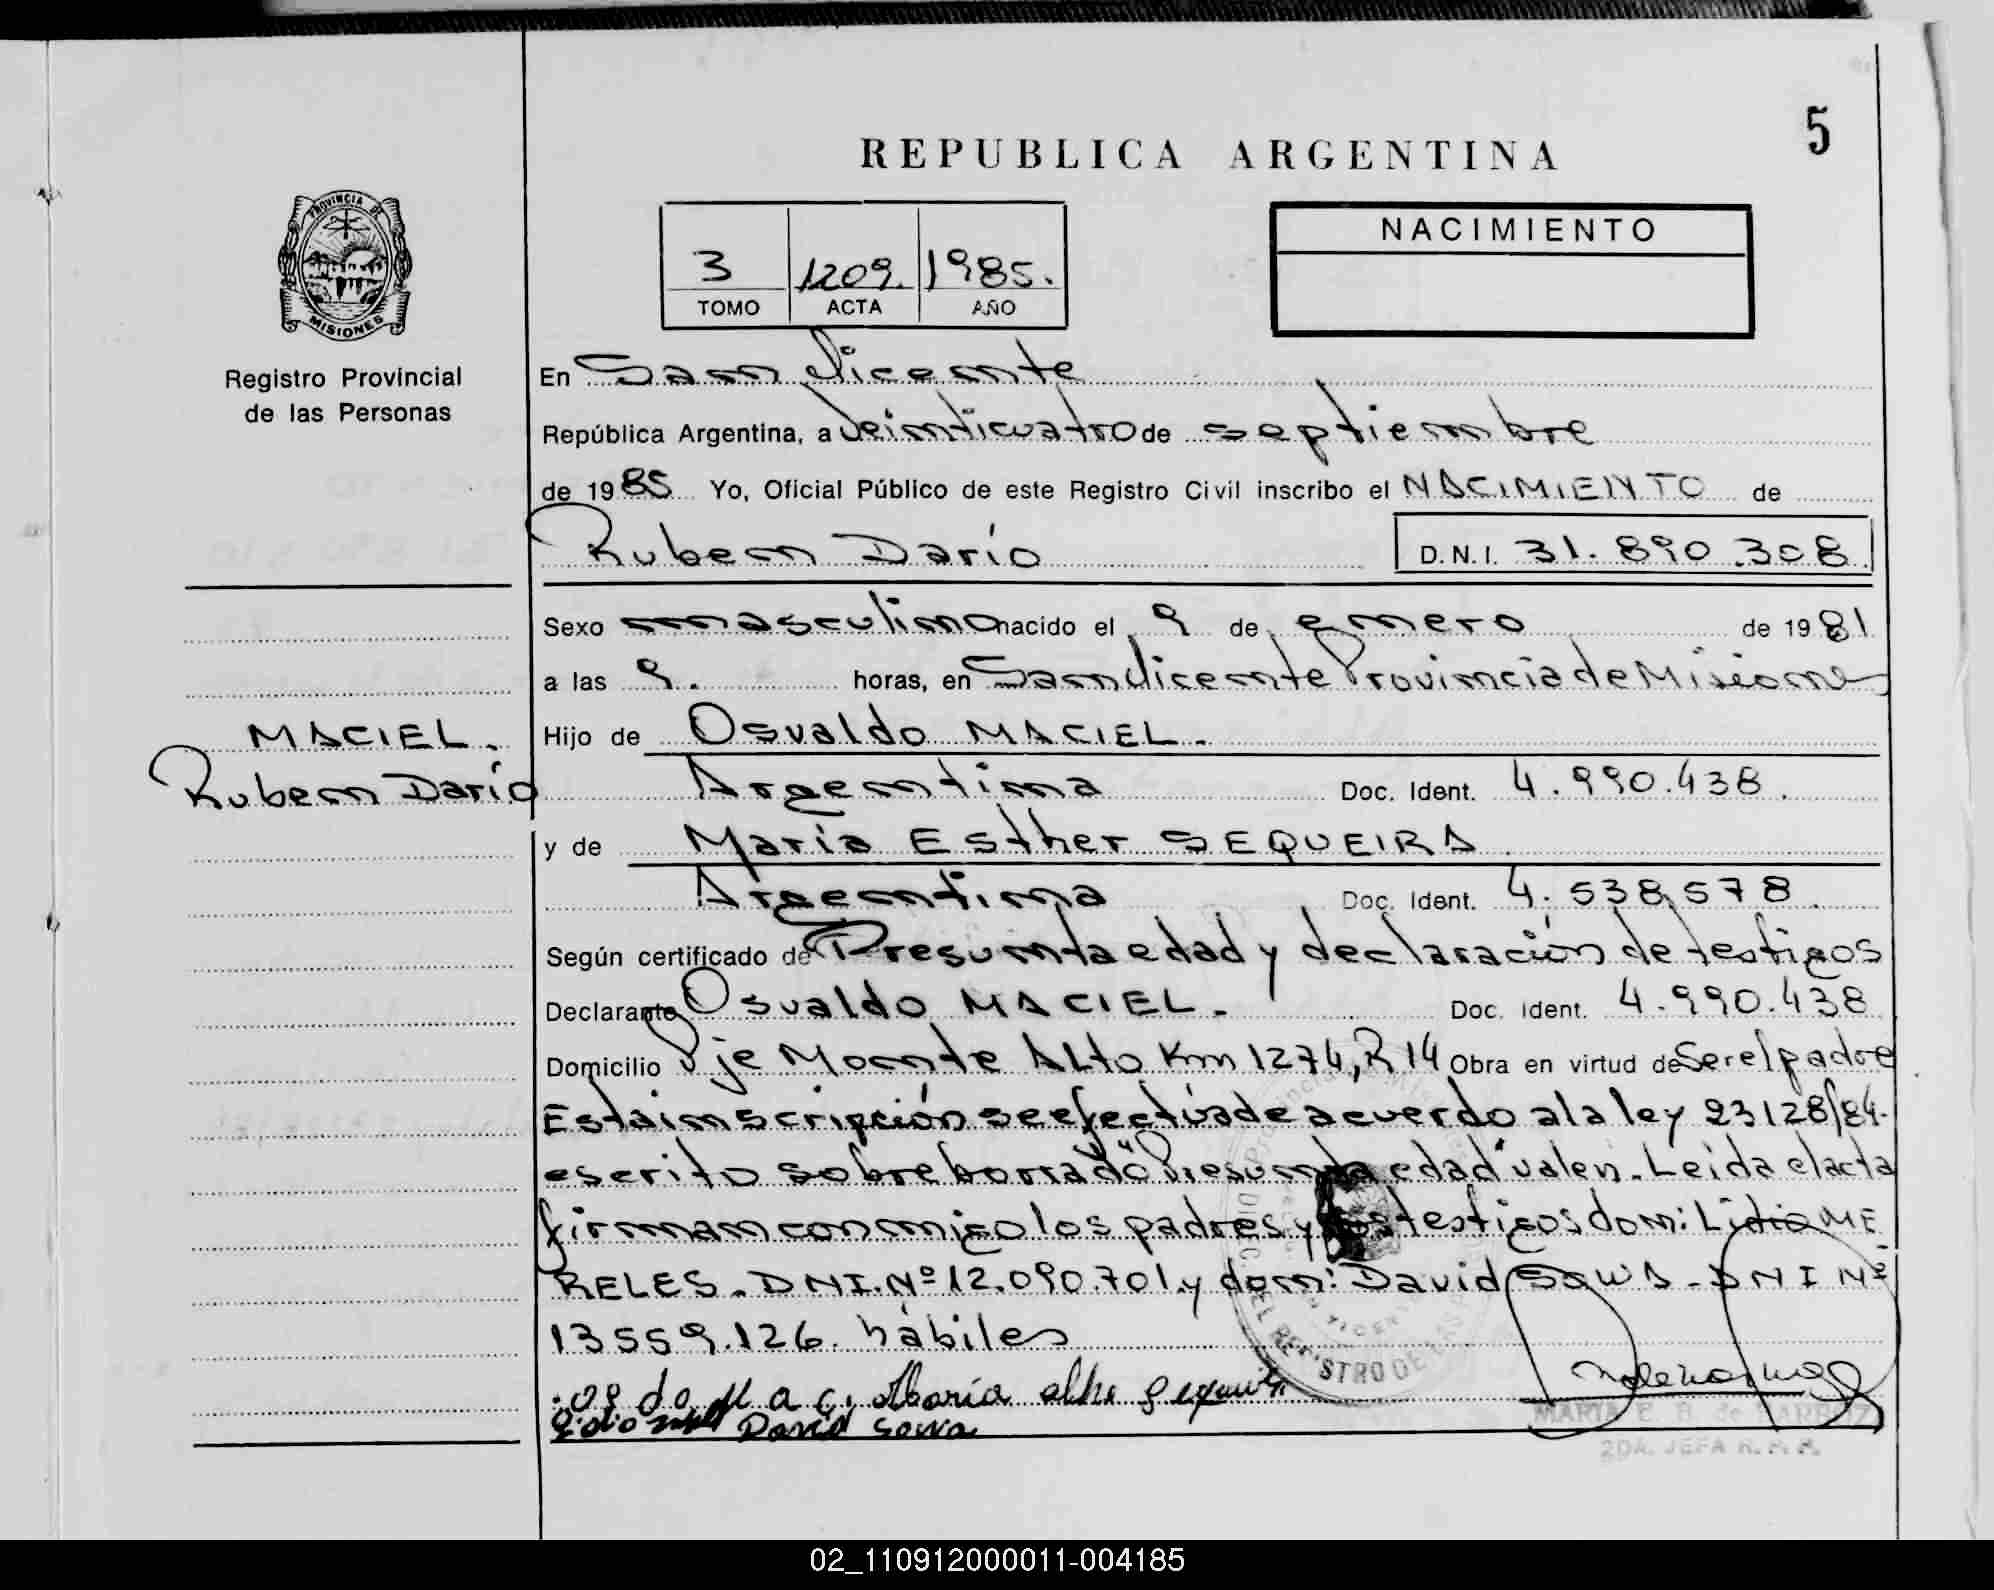 5
REPUBLICA ARGENTINA
PROVINCIA DE
MISIONES
Registro Provincial
de las Personas
3 1209. 1985.
TOMO ACTA AÑO
NACIMIENTO
En San Vicente
República Argentina, a Veinticuatro de septiembre
de 1985 Yo, Oficial Público de este Registro Civil inscribo el NACIMIENTO de
Ruben Darío D.N.I. 31.890.308
Sexo masculino nacido el 9 de enero de 1981
a las 9. horas, en San Vicente Provincia de Misiones
MACIEL.
Ruben Darío
Hijo de Osvaldo MACIEL.
Argentina Doc. Ident. 4.990.438.
y de María Esther SEQUEIRA
Argentina Doc. Ident. 4.538.578.
Según certificado de Presunta edad y declaración de testigos
Declarante Osvaldo MACIEL. Doc. Ident. 4.990.438
Domicilio Pje Monte Alto Km 1274, R 14 Obra en virtud de Ser el padre
Esta inscripción se efectúa de acuerdo a la ley 23128/84.
escrito sobre borrado "Presunta edad" valen. Leida el acta
firman conmigo los padres y los testigos don: Lidio ME
RELES. DNI. Nº 12.090.701 y don: David SAWA. DNI Nº
13559.126. hábiles
David Sawa
REGISTRO DE LAS
MARIA E. B. de BARBOZ
2DA. JEFA R. P. P.
02_110912000011-004185